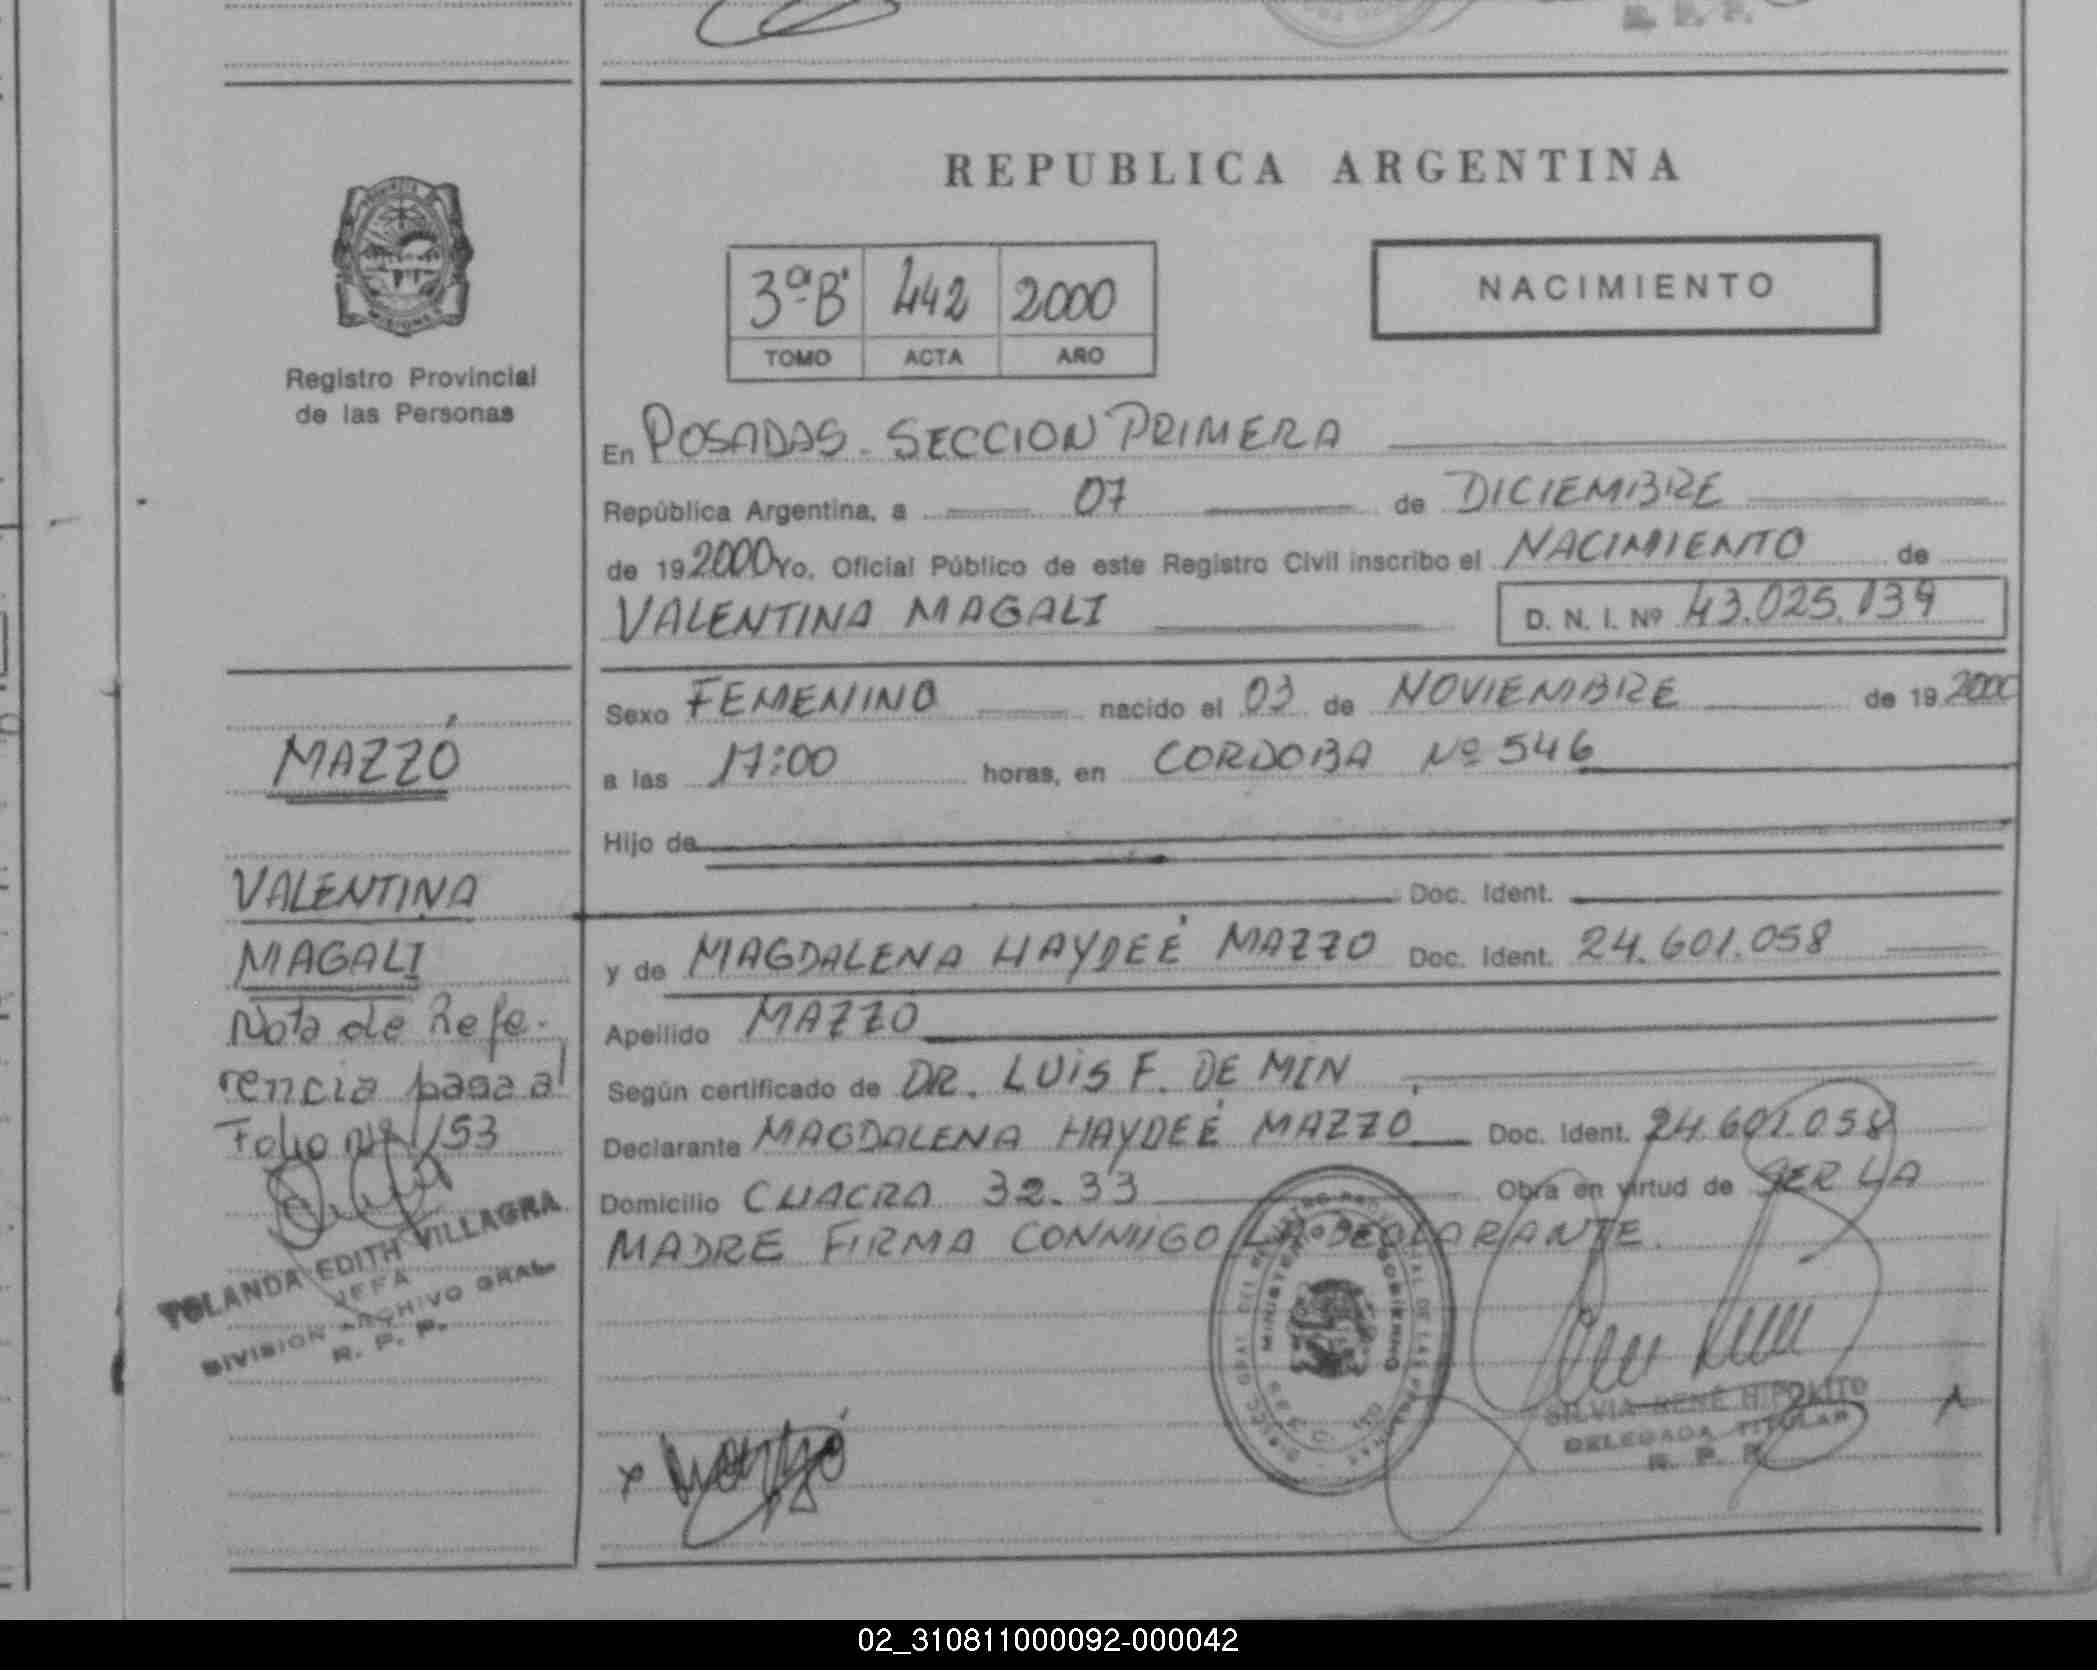 R. P. P.
REPUBLICA ARGENTINA
3ª B 442 2000
TOMO ACTA AÑO
NACIMIENTO
Registro Provincial
de las Personas
En POSADAS - SECCION PRIMERA
República Argentina, a 07 de DICIEMBRE
de 19 2000 Yo, Oficial Público de este Registro Civil inscribo el NACIMIENTO de
VALENTINA MAGALI D. N. I. Nº 43.025.139
Sexo FEMENINO nacido el 03 de NOVIEMBRE de 19 2000
a las 17:00 horas, en CORDOBA Nº 546
Hijo de
Doc. Ident.
y de MAGDALENA HAYDEÉ MAZZO Doc. Ident. 24.601.058
Apellido MAZZO
Según certificado de DR. LUIS F. DE MIN
Declarante MAGDALENA HAYDEÉ MAZZÓ Doc. Ident. 24.601.058
Domicilio CHACRA 32-33 Obra en virtud de SER LA
MADRE FIRMA CONMIGO LA DECLARANTE.
MAZZÓ
VALENTINA
MAGALI
Nota de Refe-
rencia pasa al
Folio Nº 153
YOLANDA EDITH VILLAGRA
JEFA
DIVISION ARCHIVO GRAL.
R. P. P.
MINISTERIO GOBIERNO
x Mazzó
SILVIA RENÉ HIPOLITO
DELEGADA TITULAR
R. P. P.
02_310811000092-000042